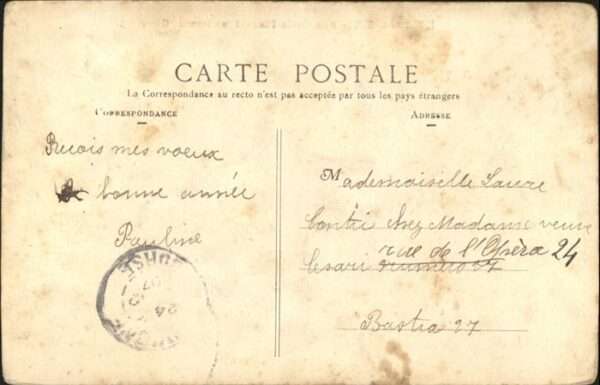 CARTE POSTALE
La Correspondance au recto n'est pas acceptée par tous les pays étrangers
CORRESPONDANCE
ADRESSE
Recois mes voeux
bonne année
Pauline
Mademoiselle Laure
chez Madame veuve
Cesari rue de l'Opéra 24
Bastia 27